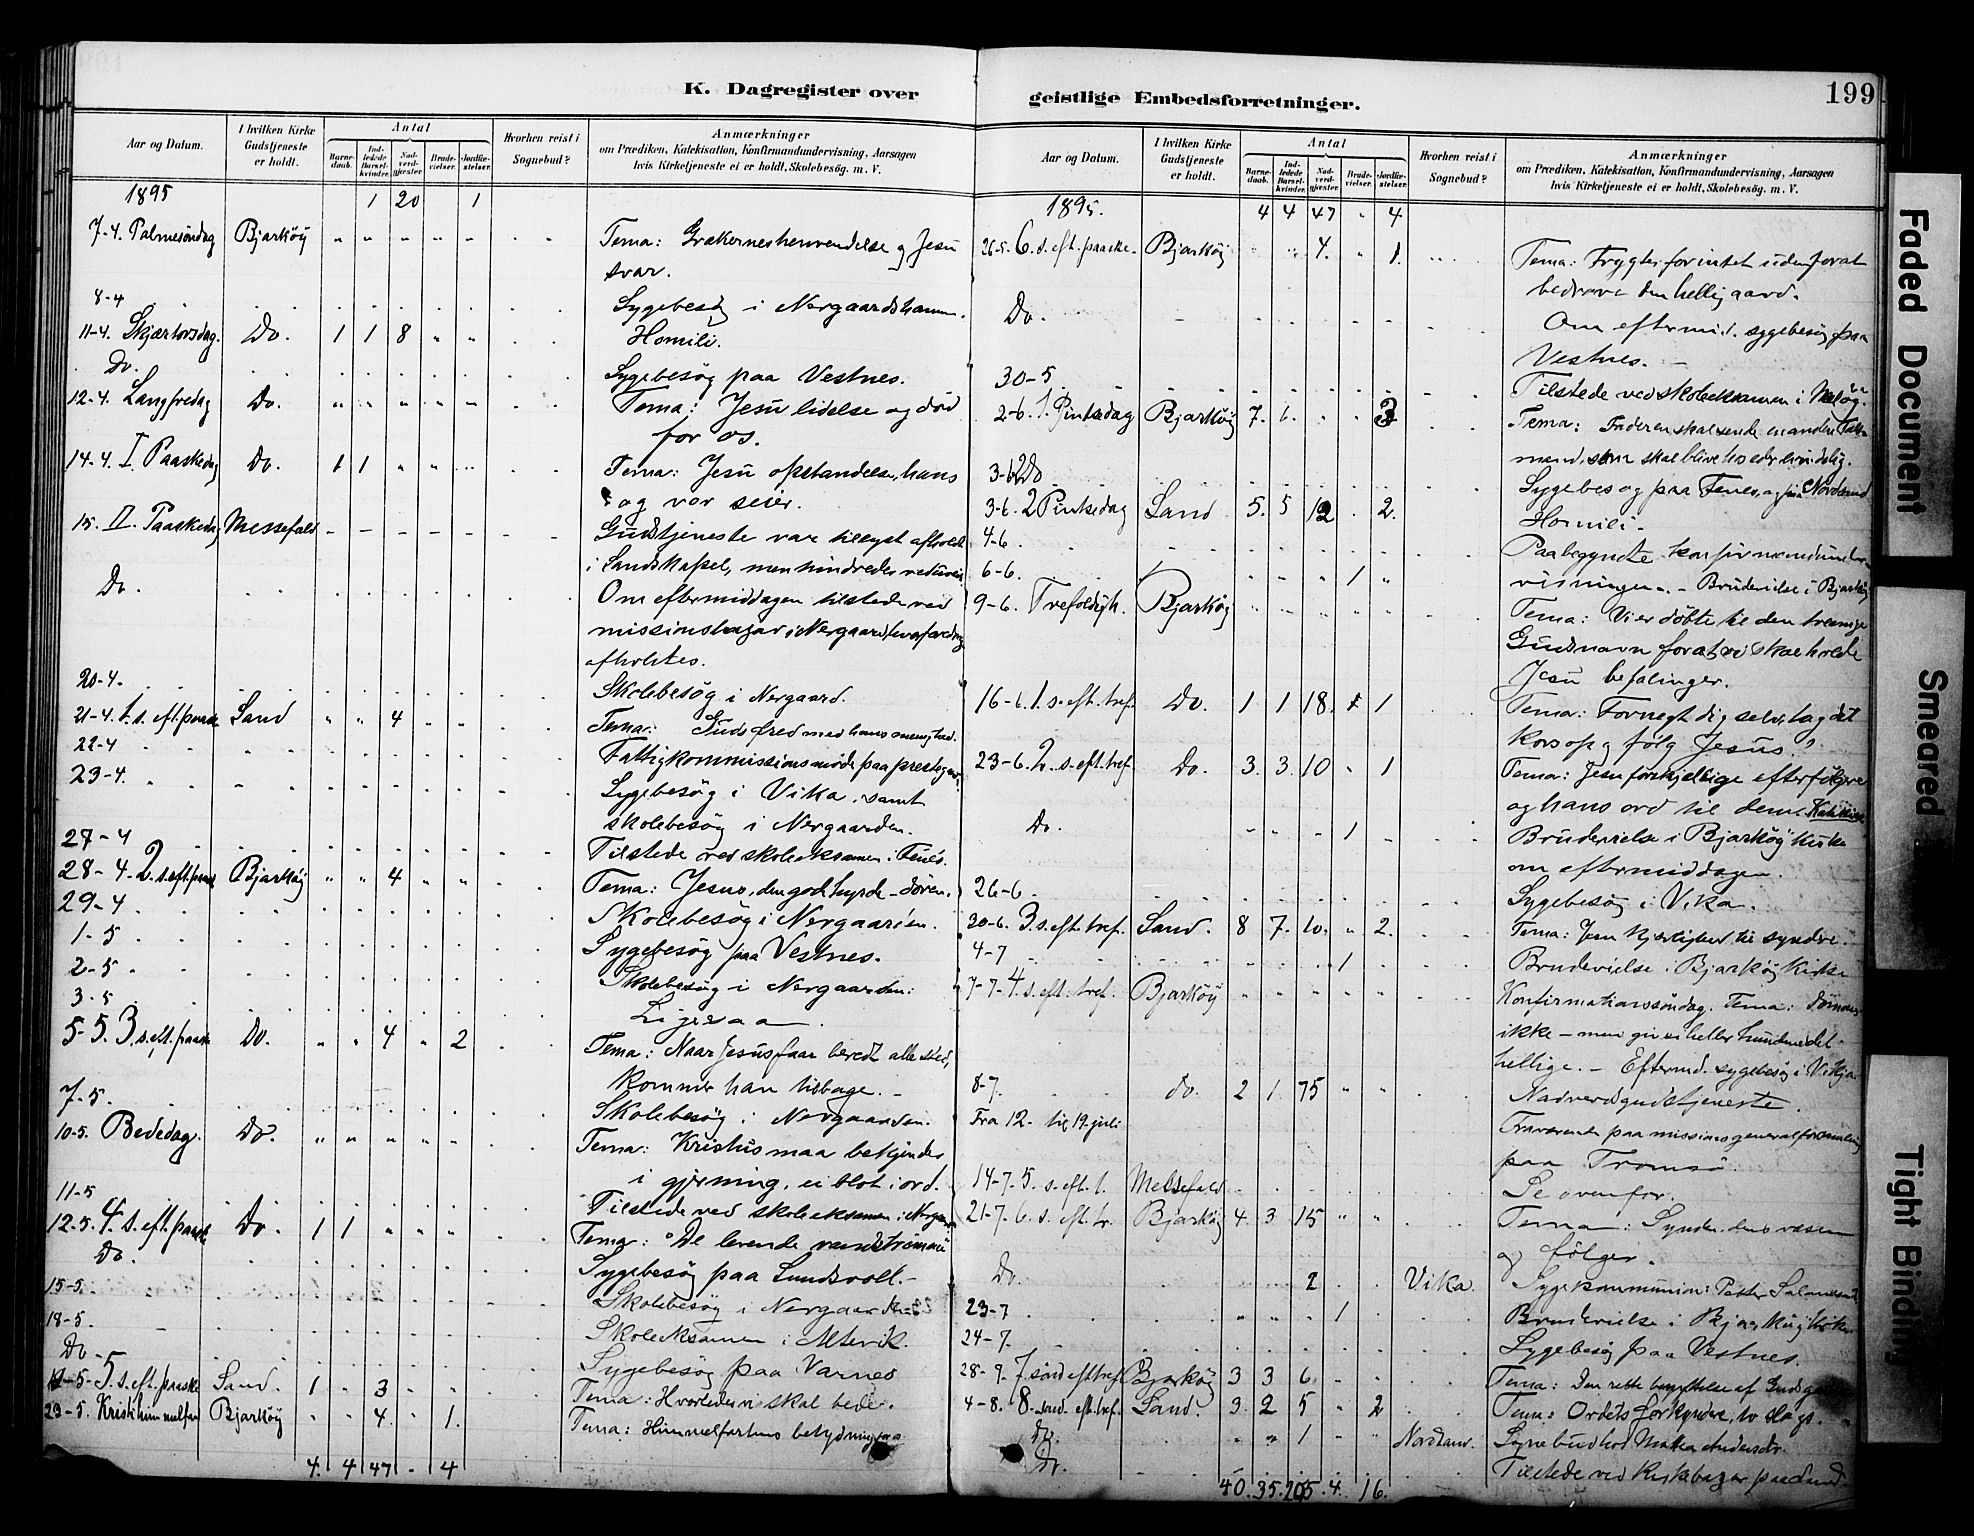 K. Dagregister over
Aar og Datum.
I hvilken Kirke Gudstjeneste er holdt.
Antal
Barne-daab.
Ind-ledede Barsel-kvinder.
Nad-verd-gjester.
Brude-vielser.
Jordfæ-stelser.
Hvorhen reist i Sognebud?
Anmærkninger
om Prædiken, Katekisation, Konfirmandundervisning, Aarsagen
hvis Kirketjeneste ei er holdt, Skolebesög. m. V.
1895 1 20 1
7-4. Palmesöndag Bjarköy " " " " " Tema: Grækernes henvendelse og Jesu
svar.
8-4 Sygebesög i Nergaardshamn.
11-4. Skjærtorsdag. Do. 1 1 8 " " Homili.
Do. Sygebesög paa Vestnes.
12-4. Langfredag Do. " " " " " Tema: Jesu lidelse og död
for os.
14-4. I Paaskedag Do. 1 1 " " " Tema: Jesu opstandelse, hans
og vor seier.
15. II. Paaskedag Messefald - - - - - Gudstjeneste var tillyst afholdt
i Sandskapel, men hindredes ved uveir
Do. Om eftermiddagen tilstede ved
missionsbazar i Nergaard, hvor foredrag
afholdtes.
20-4. Skolebesög i Nergaard.
21-4. 1. s. eft. paaske Sand " " 4 " " Tema: Guds fred med hans menighed.
22-4 Fattigkommissionsmöde paa prestegaard
23-4. Sygebesög i Vika, samt
skolebesög i Nergaarden.
27-4 Tilstede ved skoleeksamen i Fenes.
28-4. 2. s. eft. paaske Bjarköy " " 4 " " Tema: Jesus, den gode hyrde - dören.
29-4. Skolebesög i Nergaarden.
1-5 Sygebesög paa Vestnes.
2-5 Skolebesög i Nergaarden.
3-5 Ligesaa.
5-5. 3. s. eft. paaske Do. " " 4 " 2 Tema: Naar Jesus faar beredt alle sted,
kommer han tilbage.
7-5. Skolebesög i Nergaarden.
10-5. Bededag. Do. " " " " " Tema: Kristus maa bekjendes
i gjerning, ei blot i ord.
11-5 Tilstede ved skoleeksamen i Nergaarden
12-5. 4. s. eft. paaske Do. 1 1 " " " Tema: "De levende vandströmme"
Do. Sygebesög paa Sundsvoll.
15-5. Skolebesög i Nergaarden
18-5. Skoleeksamen i Altevik.
Do. Sygebesög paa Varnes
5. s. eft. paaske Sand. 1 " 3 " " Tema: Hvorledes vi skal bede.
23-5. Kristi himmelfart Bjarköy " " 4. " 1. Tema: Himmelfartens betydning for os
4. 4 47 - 4
geistlige Embedsforretninger.
199
Aar og Datum.
I hvilken Kirke Gudstjeneste er holdt.
Antal
Barne-daab.
Ind-ledede Barsel-kvinder.
Nad-verd-gjester.
Brude-vielser.
Jordfæ-stelser.
Hvorhen reist i Sognebud?
Anmærkninger
om Prædiken, Katekisation, Konfirmandundervisning, Aarsagen
hvis Kirketjeneste ei er holdt, Skolebesög. m. V.
1895. 4 4 47 " 4
26-5. 6. s. eft. paaske. Bjarköy " " 4. " 1. Tema: Frygter for intet uden for at
bedröve den hellig aand.
Do. Om eftermid. sygebesög paa
Vestnes.
30-5 Tilstede ved skoleeksamen i
2-6. 1. Pintsedag Bjarköy 7. 6. 3 Tema: Faderen skal sende en anden Tals-
mand, som skal blive hos eder
3-6 2 Do Sygebesög paa Fenes, og paa Nordsand
3-6. 2 Pintsedag Sand 5. 5 12 . 2. Homili.
4-6 Paabegyndte konfirmandunder-
6-6. 1 visningen. - Brudevielse i Bjarköy
9-6. Trefoldigh. Bjarköy Tema: Vi er döbte til den treenige
Guds navn for at vi skal holde
Jesu befalinger.
16-6. 1. s. eft. tref. Do. 1 1 18. 1 Tema: Fornegt dig selv, tag det
kors op og fölg Jesus.
23-6. 2. s. eft. tref. Do. 3. 3. 10 " 1 Tema: Jesu forskjellige efterfölgere
og hans ord til dem.
Do. 1 Brudevielse i Bjarköy kirke
om eftermiddagen.
26-6. Sygebesög i Vika.
30-6. 3. s. eft. tref. Sand. 8 7. 10. " 2. Tema: Jesu kjærlighed til syndere.
4-7 1 Brudevielse i Bjarköy kirke
7-7. 4. s. eft. tref. Bjarköy Konfirmationssöndag. Tema: Dömmer
ikke - men giv ei heller hundene det
hellige. - Eftermd. sygebesög i Vikja.
8-7. do. 2 1. 75 " " Nadverdgudstjeneste.
Fra 12. til 19. juli Fraværende paa missionsgeneralforsamling
paa Tromsö
14-7. 5. s. eft. t. Messefald Se ovenfor.
21-7. 6. s. eft. tr. Bjarköy 4. 3 15 " " Tema: Synden, dens væsen
og fölger.
Do. 2 Vika. Sygekommunion:
23-7 1 Brudevielse i Bjarköy kirke.
24-7. Sygebesög paa Vestnes.
28-7. 7. sönd eft tref Bjarköy 3 3 6. Tema: Den rette benyttelse af Guds
4-8. 8. sönd. eft. tref. Sand. 3. 2 5 " 2 Tema: Ordets forkyndere, to slags.
Do. " 1 Sognebud hos
Do. Tilstede ved paa Sand.
40. 35. 205. 4. 16.
Faded Document
Smeared
Tight Binding